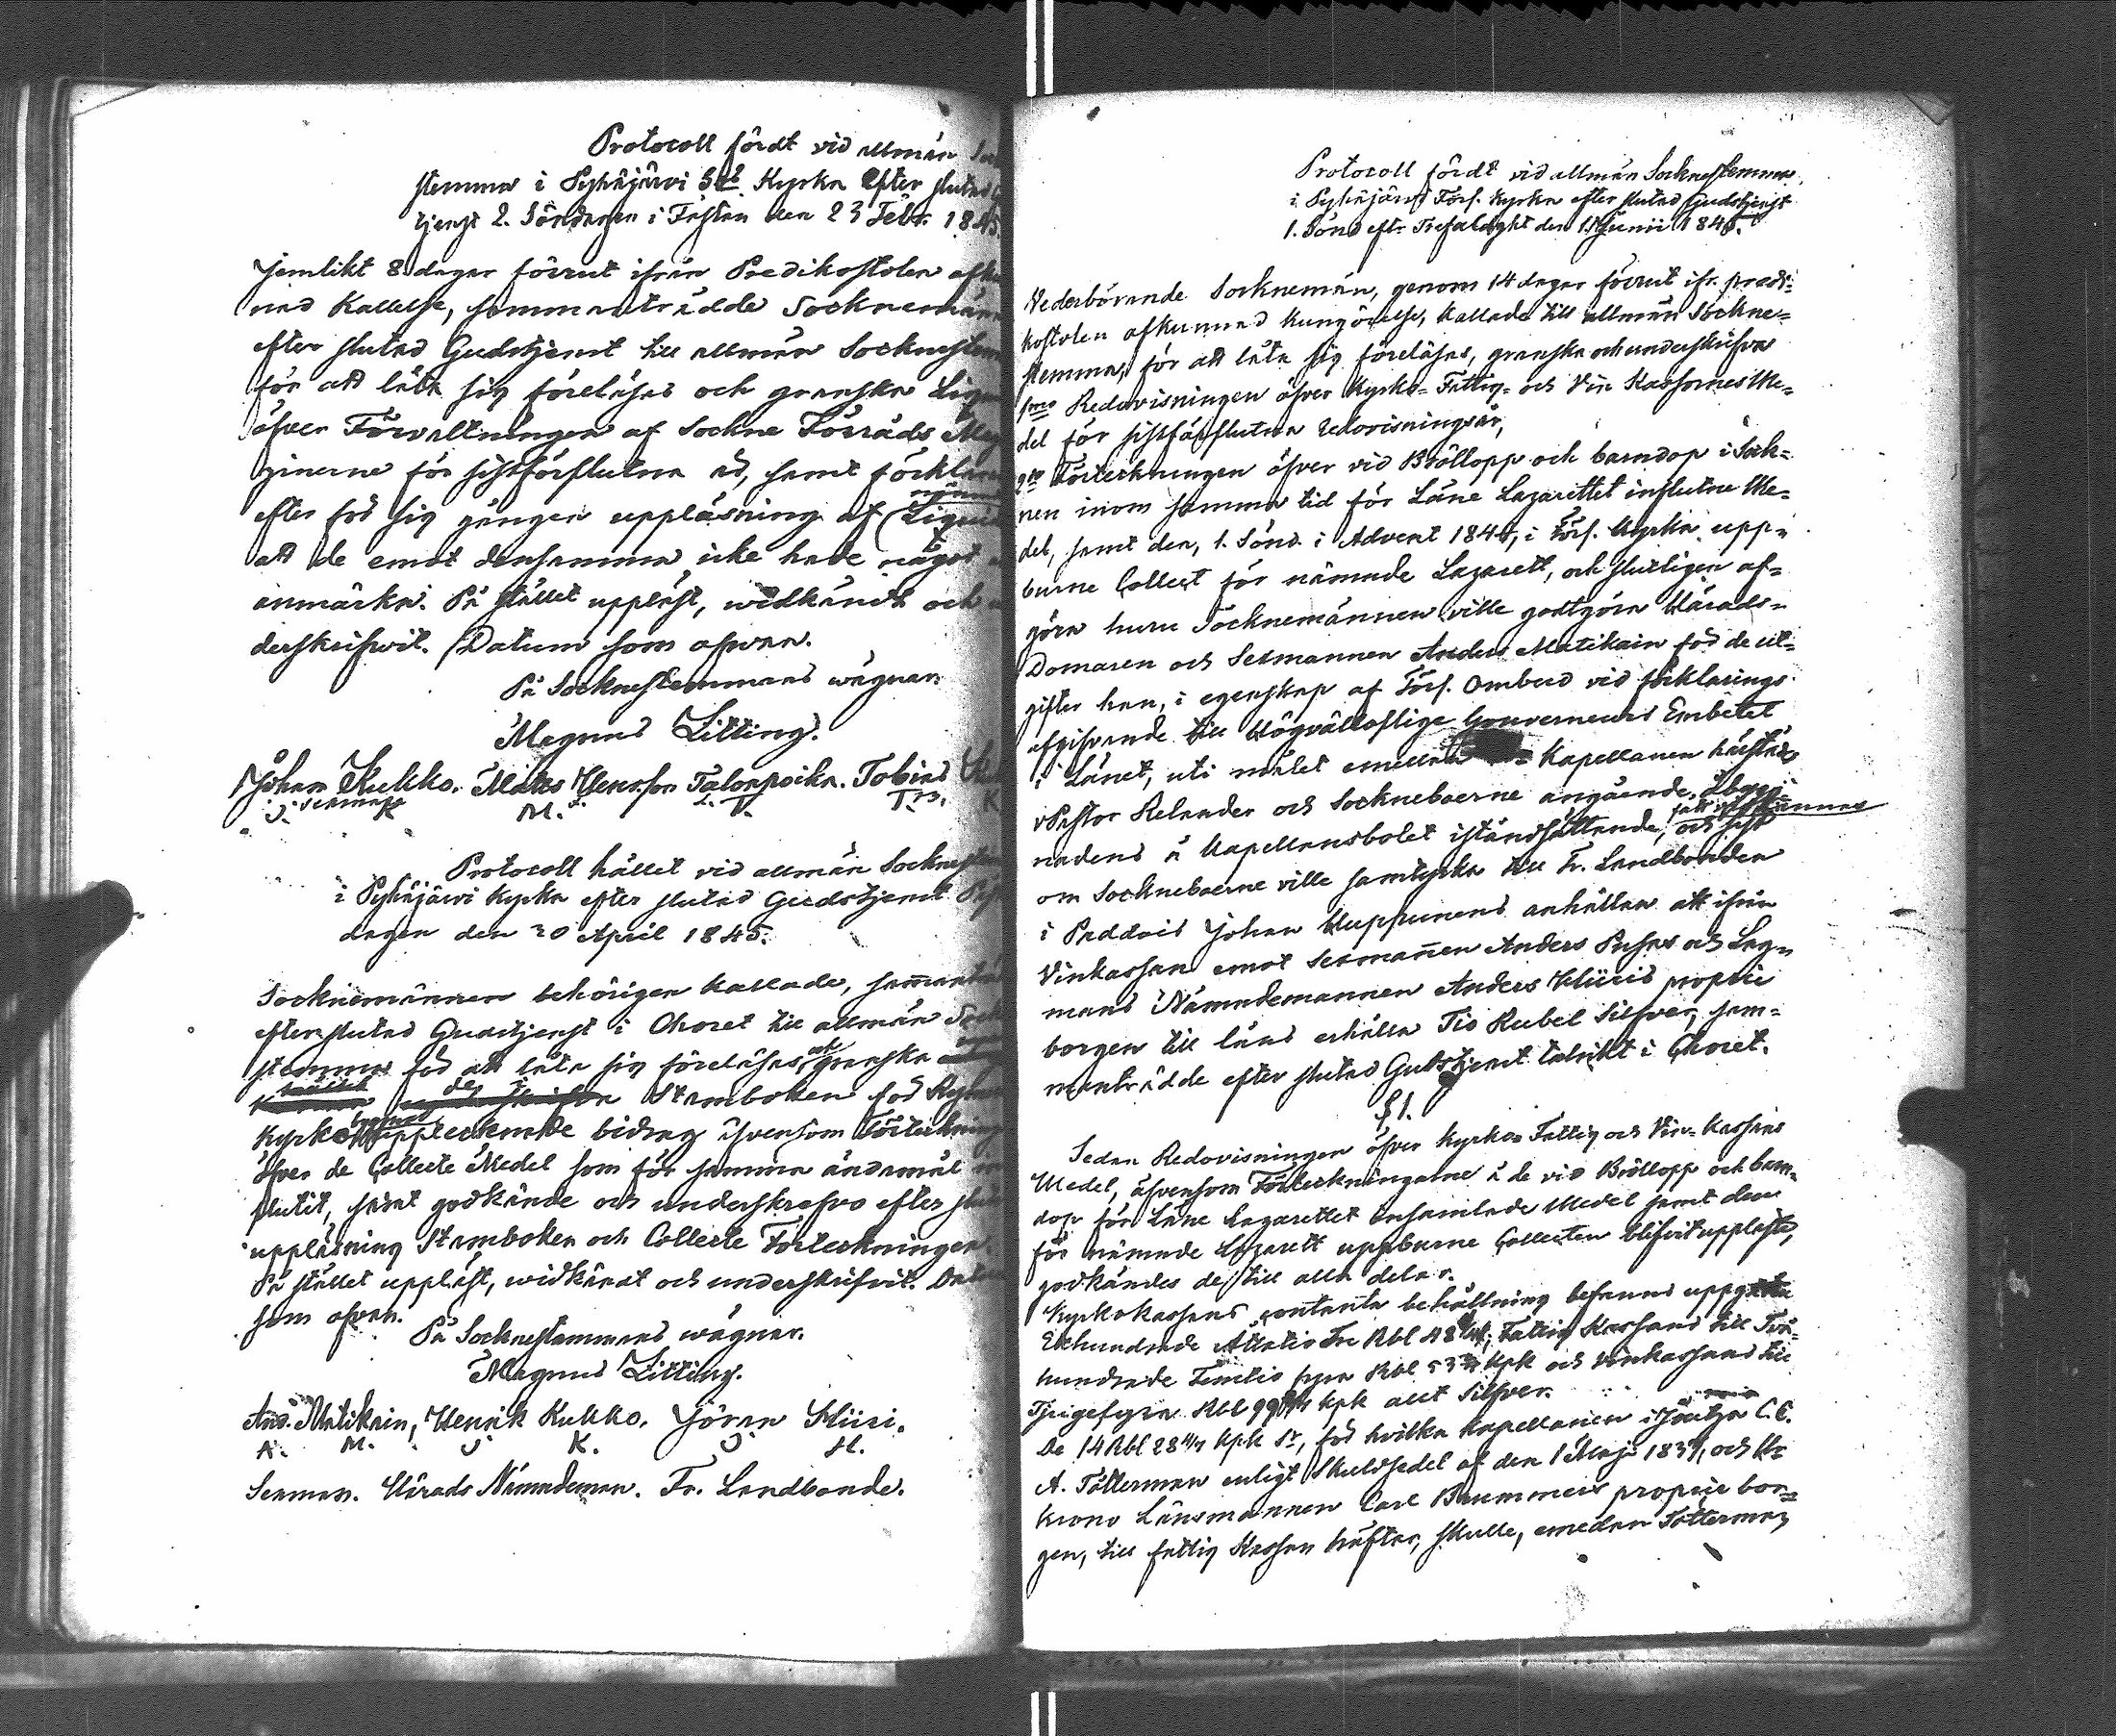 Protocoll fördt vid allmän Sock
stemma i Pyhäjärvi Kyrka efter slutad
tjenst 2. Söndagen i Fastan den 23 Febr. 1845.
Jemlikt 8 dagar förrut ifrån Predikostolen afkun
nad Kallelse, sammanträdde Socknemänn
efter slutad Gudstjenst till allmän Socknestem
för att låta sig föreläsas och granska Liqui
öfver Förvaltningen af Sockne Förråds Mag
zinerne för sistförflutna år, samt förklara
nämnd
efter för sig gången uppläsning af Liquid
att de emot densamma icke hade något
anmärka. På stället uppläst, widkändt och
derskrifwit. Datum som ofvan.
På Socknestemmans wägnar.
Magnus Litting.
Johan Kukko. Matts Henr.son Talonpoika. Tobias
J. K. M. T. T. K
Protocoll hållet vid allmän Socknestem
i Pyhäjärwi Kyrka efter slutad Gudstjenst
dagen den 20 April 1845.
Socknemännen behörigen kallade, samantr
efter slutad Gudstjenst i Choret till allmän Sock
stemma för att låta sig föreläsas, och granska
Stamboken för
Kyrko upptecknade bidrag äfvensom Förteckning
öfver de Collecte Medel som för samma ändamål
flutit, samt godkände och underskrefvo efter
uppläsning Stamboken och Collecte Förteckningen.
På stället uppläst, widkändt och underskrifvit. Dat
som ofvan.
På Socknestammans wägnar.
Magnus Litting.
And. Matikain, Henrik Kukko. Jöran Hiisi.
A. M. K. J. H.
Sexman. Härads Nämndeman. Fr. Landbonde.
Protocoll fördt vid allmän Socknestemma
i Pyhäjärvi Förs. Kyrka efter slutad Gudstjenst
1. Sönd. eft. Trefaldight den 1 Junii 1845.
Vederbörande Socknemän, genom 14 dagar förrut ifr. predi-
kostolen afkunnad Kungörelse, kallade till allmän Sockne-
stemma, för att låta sig föreläsas, granska och underskrifva
1mo Redovisningen öfver Kyrko- Fattig- och Vin Kassornes Me-
del för sistförflutna redovisningsår,
2do Förteckningen öfver vid Bröllopp och barndop i Sock-
nen inom samma tid för Läne Lazarettet influtne Me-
del, samt den, 1. Sönd. i Advent 1844, i Förs. Kyrka upp-
burne Collect för nämnde Lazarett, och slutligen af-
göra huru Socknemännen ville godtgöra Härads-
Domaren och Sexmannen Anders Matikain för de ut-
gifter han, i egenskap af Förs. Ombud vid förklarings
afgifvande till Högvälloflige Gouverneurs Embetet
i Länet, uti målet emellan Kapellanen härstädes
vPastor Relander och Sockneboerne angående Åbygg-
nadens å Kapellansbolet iståndsättande, och sist
om Sockneboerne ville samtycka till Fr. Landbonden
i Paddais Johan Huppunens anhållan att ifrån
Vinkassan emot Sexmannen Anders Puhas och Lag-
mans Nämndemannen Anders Hiiris proprie
borgen till låns erhålla Tio Rubel Silfver, sam-
manträdde efter slutad Gudstjenst talrikt i Choret.
§ 1.
Sedan Redovisningen öfver Kyrko- Fattig och Vin-Kassans
Medel, äfvensom Förteckningarne å de vid Bröllopp och barn-
dop för Läne Lazarettet insamlade Medel samt den
för nämnde Lazarett uppburne Collecten blifvit uppläste,
godkändes de till alla delar.
Kyrkokassans contanta behållning befanns uppgå till
Etthundrade Åttatio Tre Rbl 48 Kpk; Fattig Kassans till Två-
hundrade Femtio fyra Rbl 53 Kpk och Vinkassans till
Tjugefyra Rbl 99 Kpk allt Silfver.
De 14 Rbl 28 4/7 Kpk Sr, för hvilka Kapellanen i Jääski C. E.
A. Tötterman enligt Skuldsedel af den 1 Maji 1839, och Hr
Krono Länsmannen Carl Brummers proprie bor-
gen, till fattig Kassan häftar, skulle, emedan Tötterman